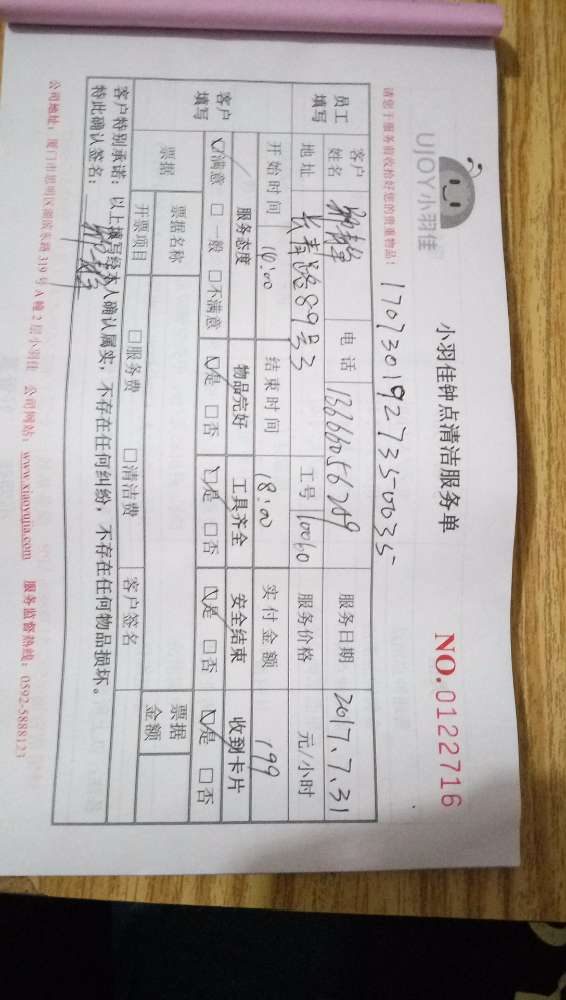 UJOY小羽佳
小羽佳钟点清洁服务单
NO.0122716
请您于服务前收检好您的贵重物品：
170730192735-0035
员工填写
客户姓名
电话
服务日期 2017.7.31
地址 长青路89号3
工号 10060
服务价格 元/小时
开始时间 14:00
结束时间 18:00
实付金额 199
客户填写
服务态度 物品完好 工具齐全 安全结束 收到卡片
☑满意 □一般 □不满意 ☑是 □否 ☑是 □否 ☑是 □否 ☑是 □否
票据
票据名称
票据金额
开票项目 □服务费 □清洁费 客户签名
客户特别承诺：以上填写经本人确认属实，不存在任何纠纷，不存在任何物品损坏。
特此确认签名：
公司地址：厦门市思明区湖滨东路319号A幢2层小羽佳 公司网站：www.xiaoyujia.com 服务监督热线：0592-5888123